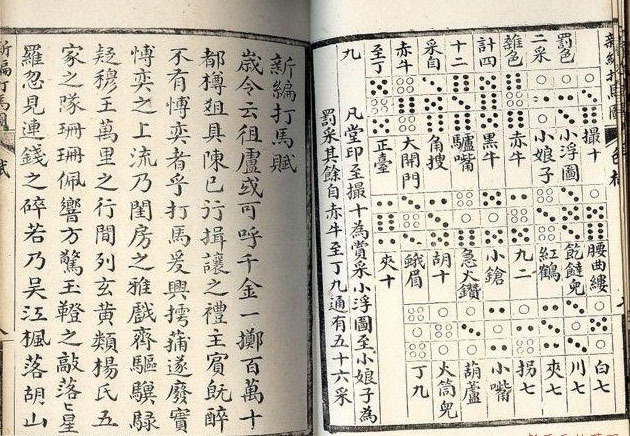 新編打馬圖
罰色
二采
雜色
計四
十二
采自
赤牛
至丁
九
撮十
小浮圖
小娘子
赤牛
黑牛
驢嘴
角搜
大開門
正臺
腰曲縷
紅鶴
九二
小鎗
急火鑽
胡十
蛾眉
夾十
白七
川七
夾七
拐七
小嘴
葫蘆
火筒兒
丁九
凡堂印至撮十為賞采小浮圖至小娘子為
罰采其餘自赤牛至丁九通有五十六采
新編打馬賦
歲令云徂盧或可呼千金一擲百萬十
都樽俎具陳已行揖讓之禮主賓旣醉
不有愽奕者乎打馬爰興摴蒱遂廢實
愽奕之上流乃閨房之雅戲齊驅驥騄
疑穆王萬里之行間列玄黃類楊氏五
家之隊珊珊佩響方驚玉鞚之敲落〻星
羅忽見連錢之碎若乃吳江楓落胡山
新編打馬圖 賦